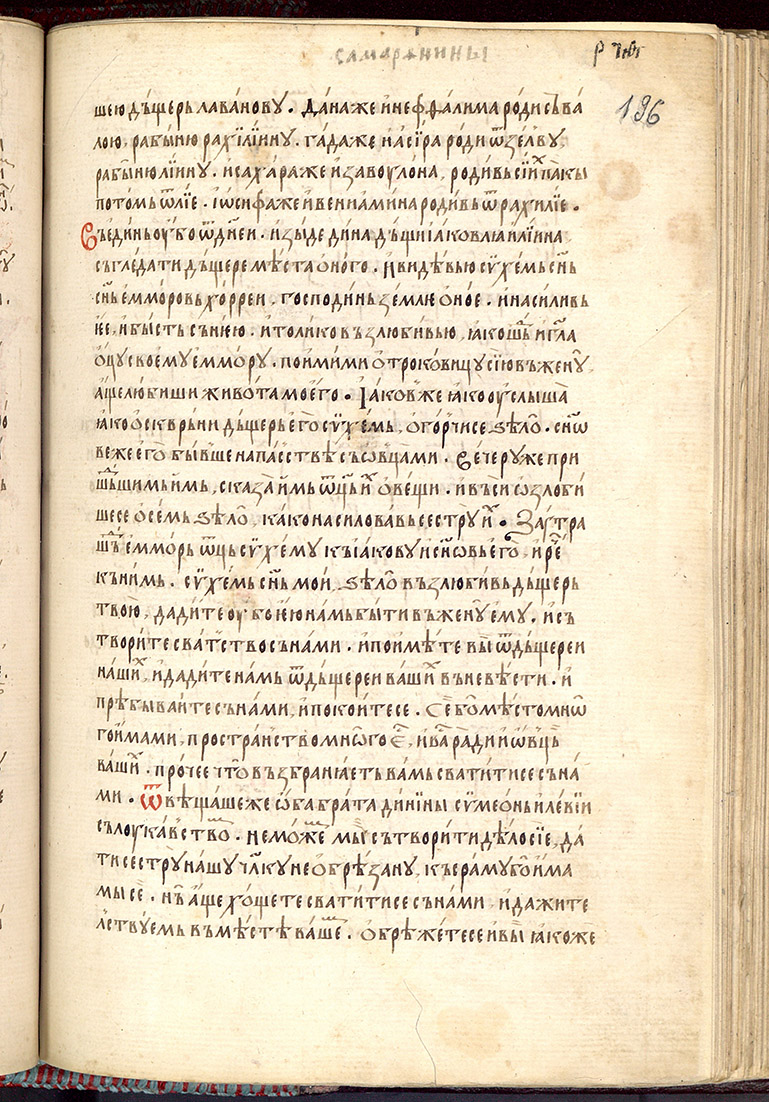 самарѧнины
196
шею дъщерь лаваⷩ҇нову. Дана же и неффалима роди съ ва
лою, рабынⷭ҇ю рахилїиⷩ҇ну. гада же и асїра роди ѿ зелву
рабыню лїину. исахара же и завоулѡна, родивь сїиⷯ пакы
потомь ѿ лїе. іѡсифа же и венїамина родивь ѿ рахилїе.
Въ единь оубо ѿ днеи. изыде дина дъщи іаковлꙗ и лїина
съгледати дъщере мѣста оного. и видѣвь ю сѵхемь сн҃ь
сн҃ь емморовь хорреи. господинь земле оное. и насиливь
ѥе, и бысть съ нѥю. и толико възлюбивь ю, ꙗко шⷣь и гл҃а
оц҃у своему еммору. поими ми отроковицу сїю въ жену,
аще любиши живота моего. Іаков же ꙗко оуслыша
ꙗко оскврьни дъщерь его сѵхемь, огорчи се ѕѣло. сн҃ѡ
ве же его бывше на паствѣ съ ѡвцами. Вечеру же при
шⷣьшимь имь, сказа имь ѿц҃ь иⷯ о вещи. и въси ѡзлоби
ше се о семь ѕѣло, како насилова вь сестру иⷯ. Заутра
шⷣь емморь ѿц҃ь сѵхему къ іакову и сн҃ѡвь его, и реⷱ
кь нимь. сѵхемь сн҃ь мои, ѕѣло възлюбивь дъщерь
твою, дадите оубо ю намь быти въ жену ему. и съ
творите сватⷭ҇тво съ нами. и поимѣте вы ѿ дъщереи
нашиⷯ, и дадите намь ѿ дъщереи вашиⷯ въ невѣсти. и
прѣбываите съ нами, и покоите се. Се бо мѣсто мнѡ
го имами, пространство мнѡго еⷭ҇, и ва ради и ѡвць
вашиⷯ. прочее что възбранꙗеть вамь сватити се съ на
ми. Ѿвѣщаше же ѡба брата динины сѵмеонь и левїи
съ лоукавⷭ҇тво. не може мы сътворити дѣло сїе, да
ти сестру нашу чл҃ку необрѣзану, къ сраму бо има
мы се. нъ аще хощете сватити се съ нами, и да жите
лствуемь въ мѣстѣ ваше. обрѣжете се и вы ꙗкоже